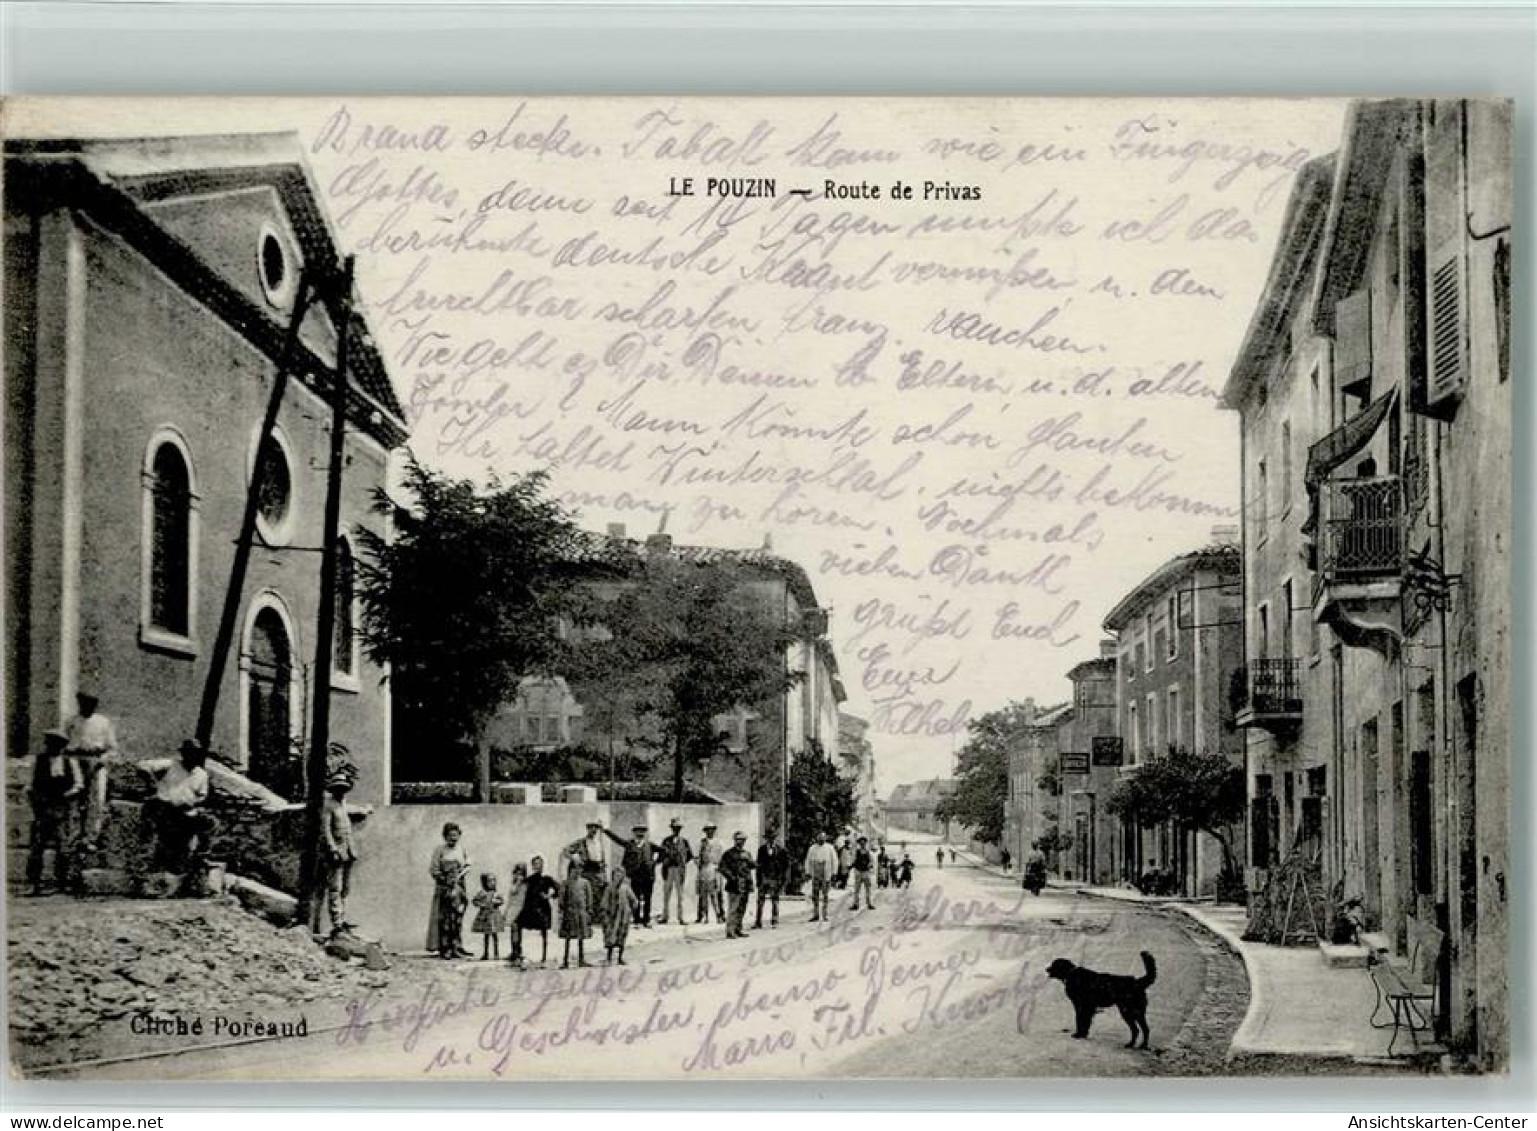 Brand stecken. Tabak kam wie ein Fingerzeig
LE POUZIN — Route de Privas
Gottes, denn seit 14 Tagen mußte ich das
berühmte deutsche Kraut vermißen u. den
furchtbar scharfen franz. rauchen.
Wie geht es Dir, Deinen lb Eltern, u. d. alten
? Mann könnte schon glauben
Ihr haltet Winterschlaf, nichts bekommt
man zu hören. Nochmals
vielen Dank
grüßt Euch
Euer
Wilhelm
Herzliche Grüße an m. lb. Eltern
u. Geschwister, ebenso Deiner
Marie, Frl.
Cliché Poreaud
delcampe.net
Ansichtskarten-Center